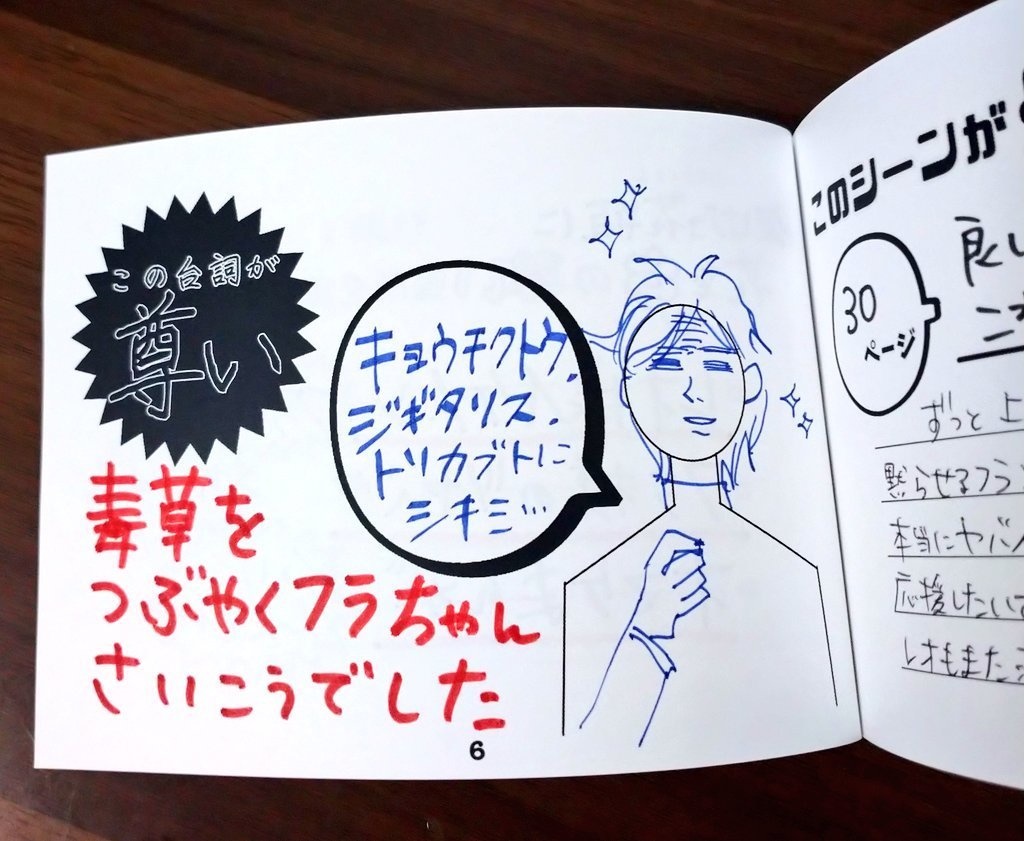 この台詞が
尊い
キョウチクトウ、
ジギタリス、
トリカブトに
シキミ…
毒草を
つぶやくフラちゃん
さいこうでした
6
このシーンが
30
ページ
良い
ずっと上
黙らせるフラ
本当にヤバ
応援したい
レオもまた